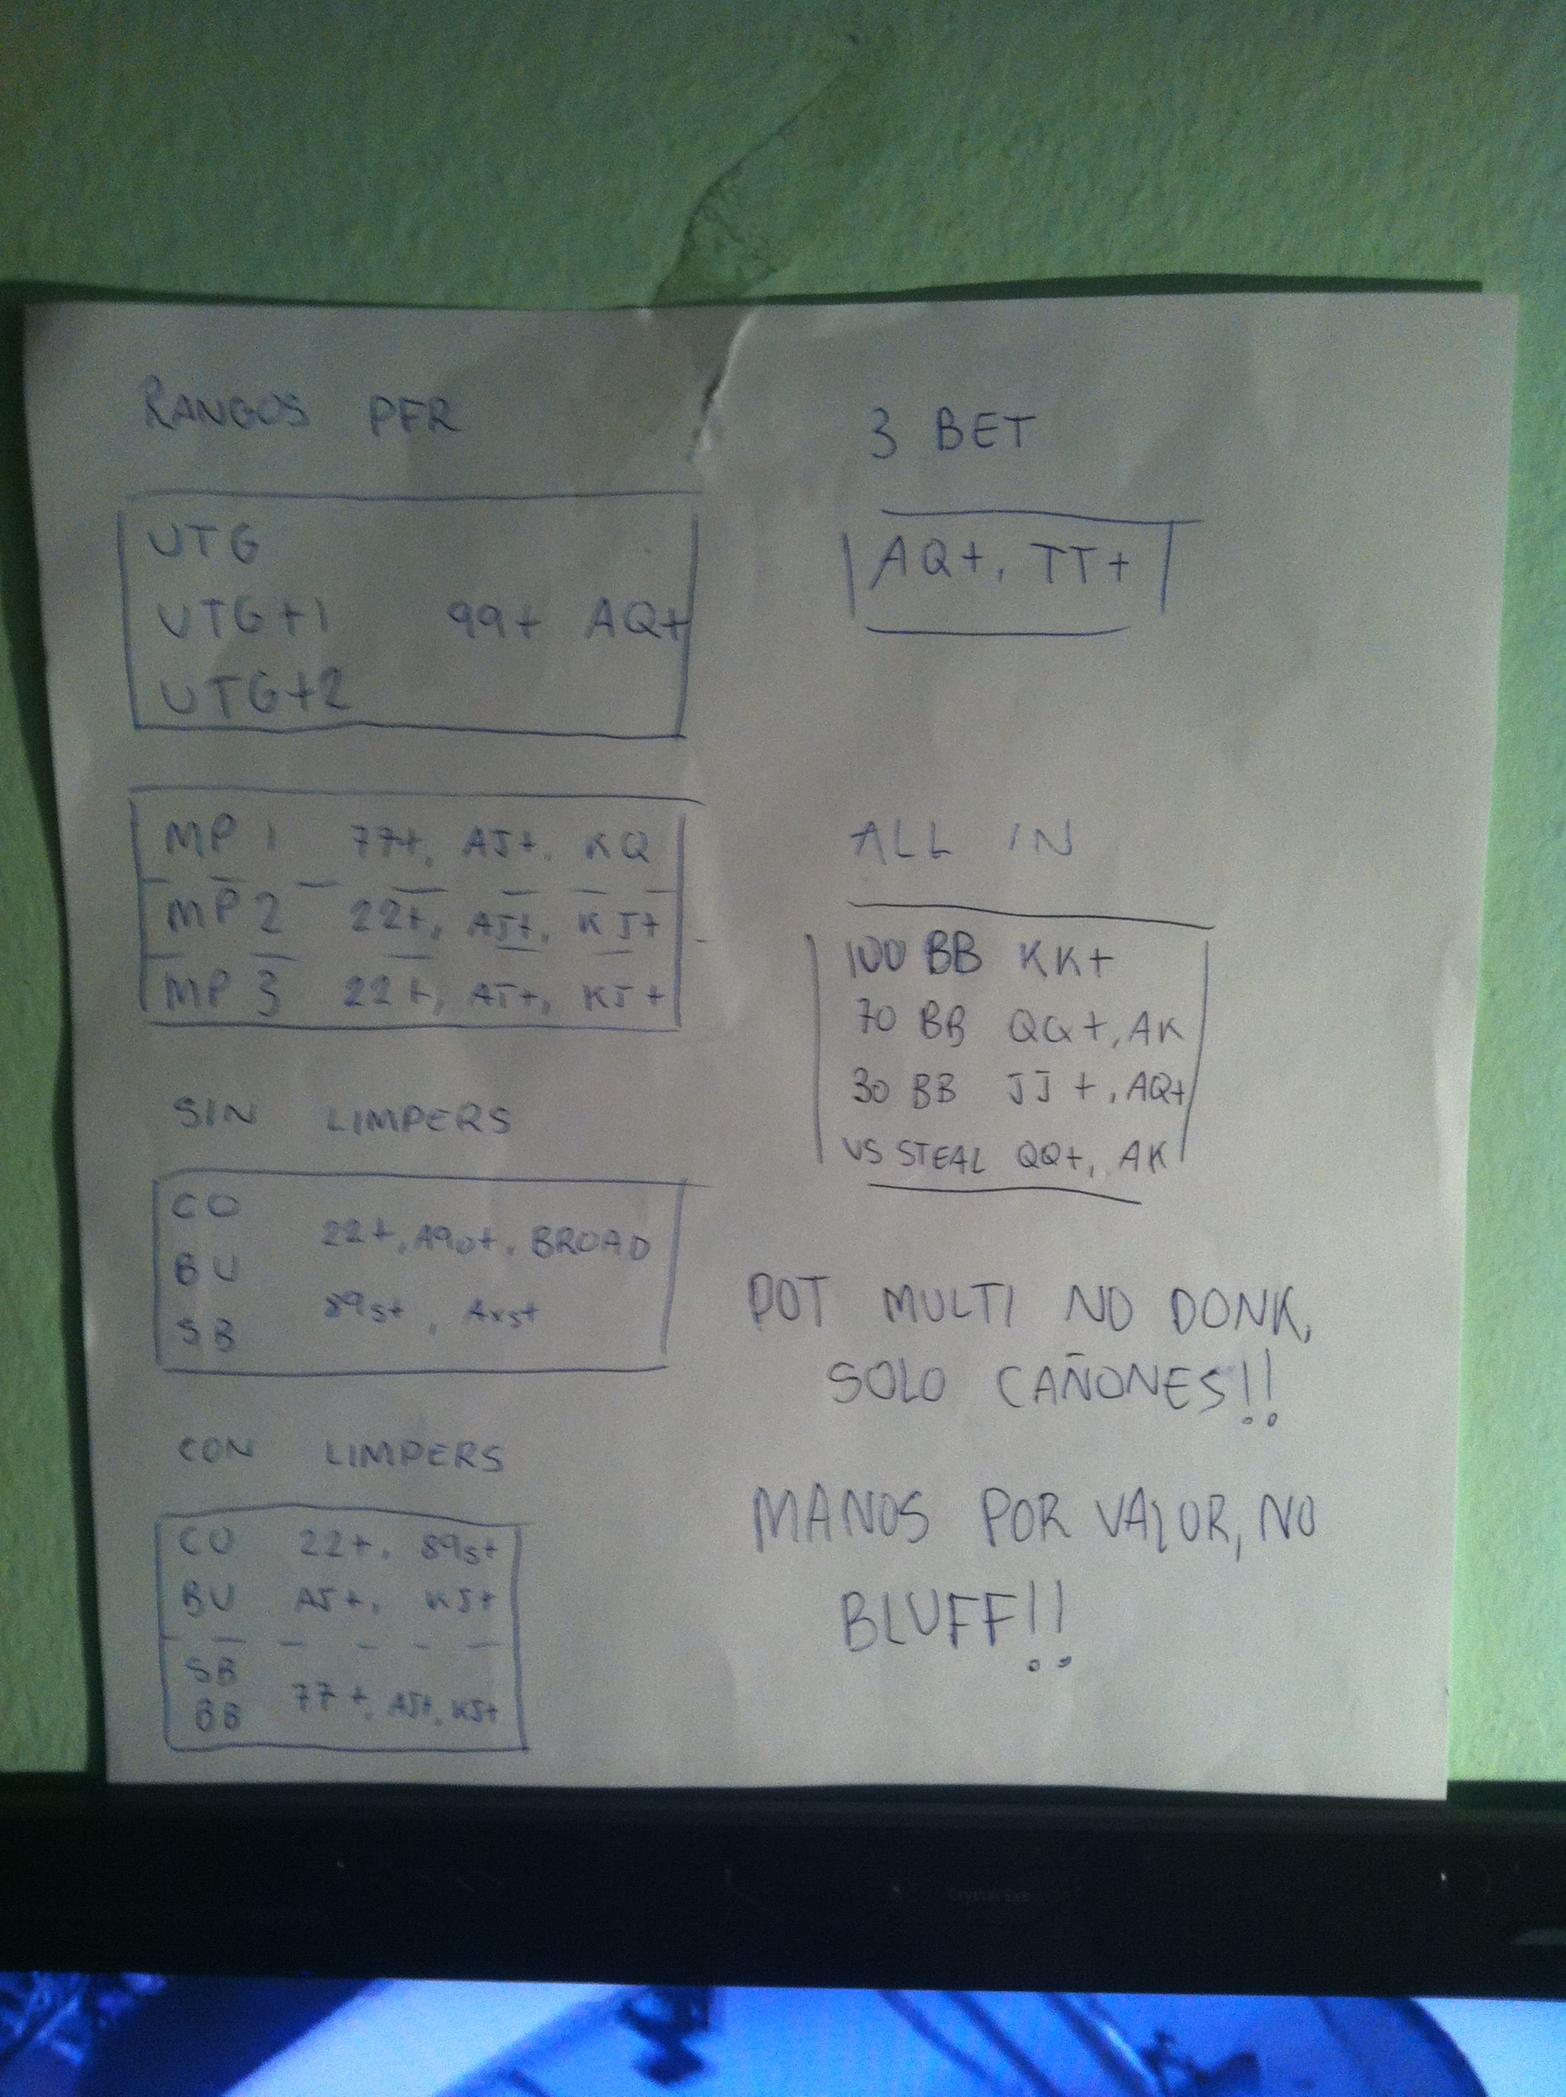 RANGOS PFR
UTG
UTG+1 99+ AQ+
UTG+2
MP 1 77+, AJ+, KQ
MP 2 22+, AJ+, KJ+
MP 3 22+, AJ+, KJ+
SIN LIMPERS
CO
22+, A9o+, BROAD
BU
89s+, Axs+
SB
CON LIMPERS
CO 22+, 89s+
BU AJ+, KJ+
SB
77+, AJ+, KJ+
BB
3 BET
AQ+, TT+
ALL IN
100 BB KK+
70 BB QQ+, AK
30 BB JJ+, AQ+
VS STEAL QQ+, AK
POT MULTI NO DONK,
SOLO CAÑONES!!
MANOS POR VALOR, NO
BLUFF!!
Crystal Eye